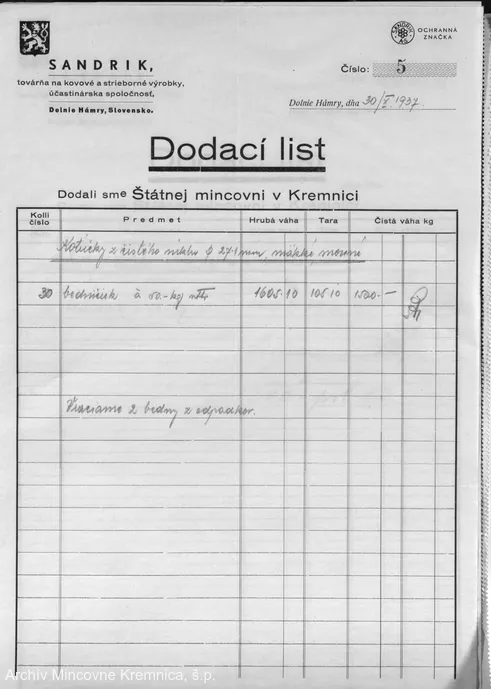 SANDRIK,
továrňa na kovové a strieborné výrobky,
účastinárska spoločnosť,
Dolnie Hámry, Slovensko.
SANDRIK
OCHRANNÁ
ZNAČKA
Číslo: 5
Dolnie Hámry, dňa 30/V. 1937.
Dodací list
Dodali sme Štátnej mincovni v Kremnici
Kolli číslo Predmet Hrubá váha Tara Čistá váha kg
Kotúčky z čistého niklu φ 27·1 mm, mäkké, morené
30 bedničiek à 50.- kg 1605·10 105·10 1500.—
Vraciame 2 bedny z odpadkov.
Archív Mincovne Kremnica, š.p.